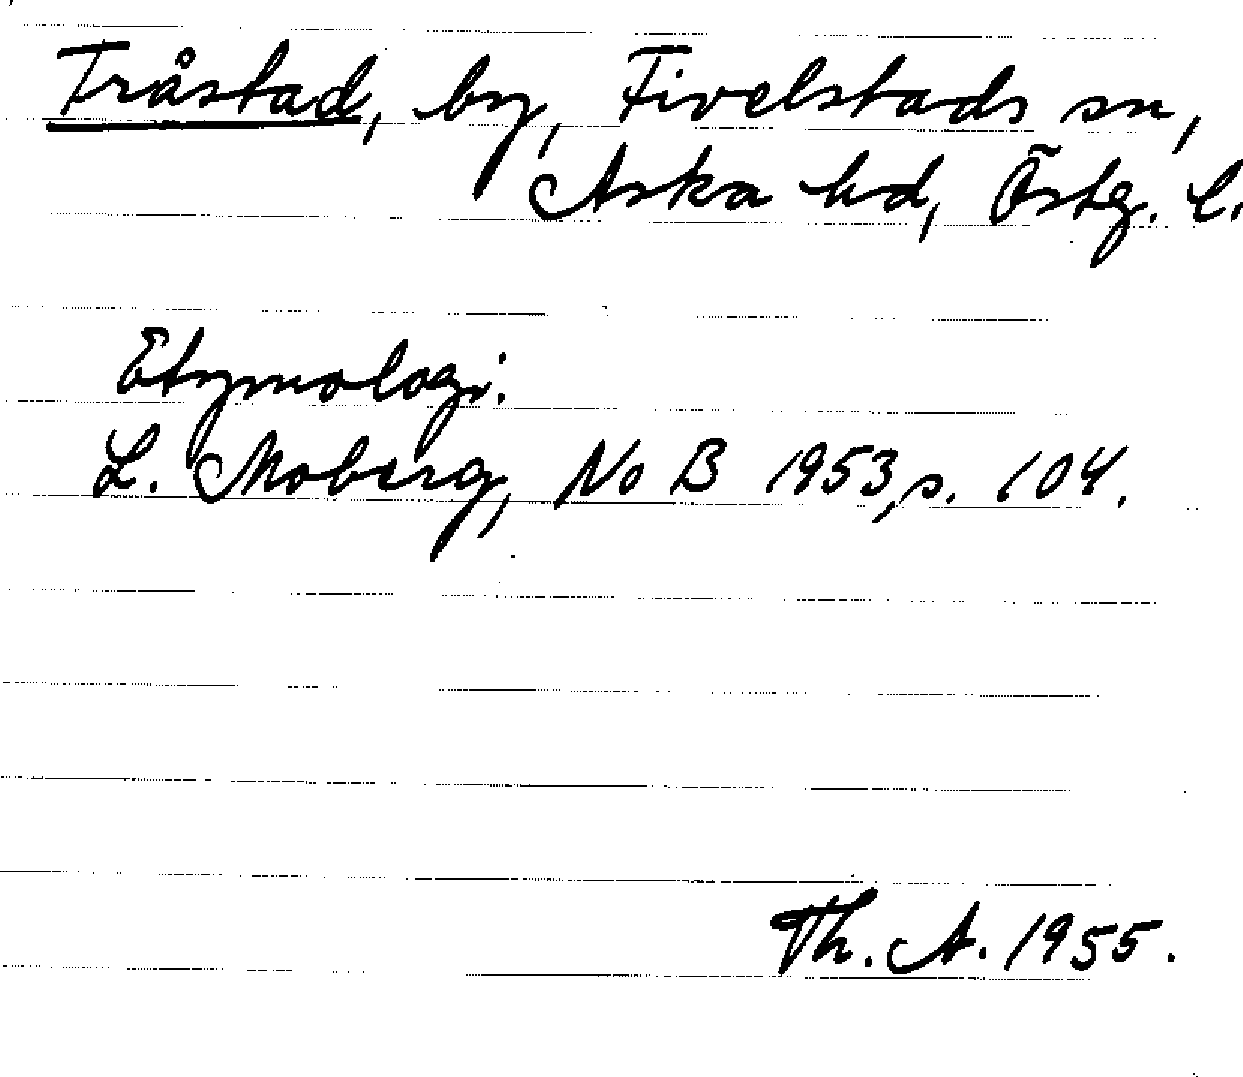 Tråstad, by, Fivelstads sn,
Aska hd, Östg. l.
Etymologi:
L. Moberg, No B 1953, s. 104.
Th. A. 1955.